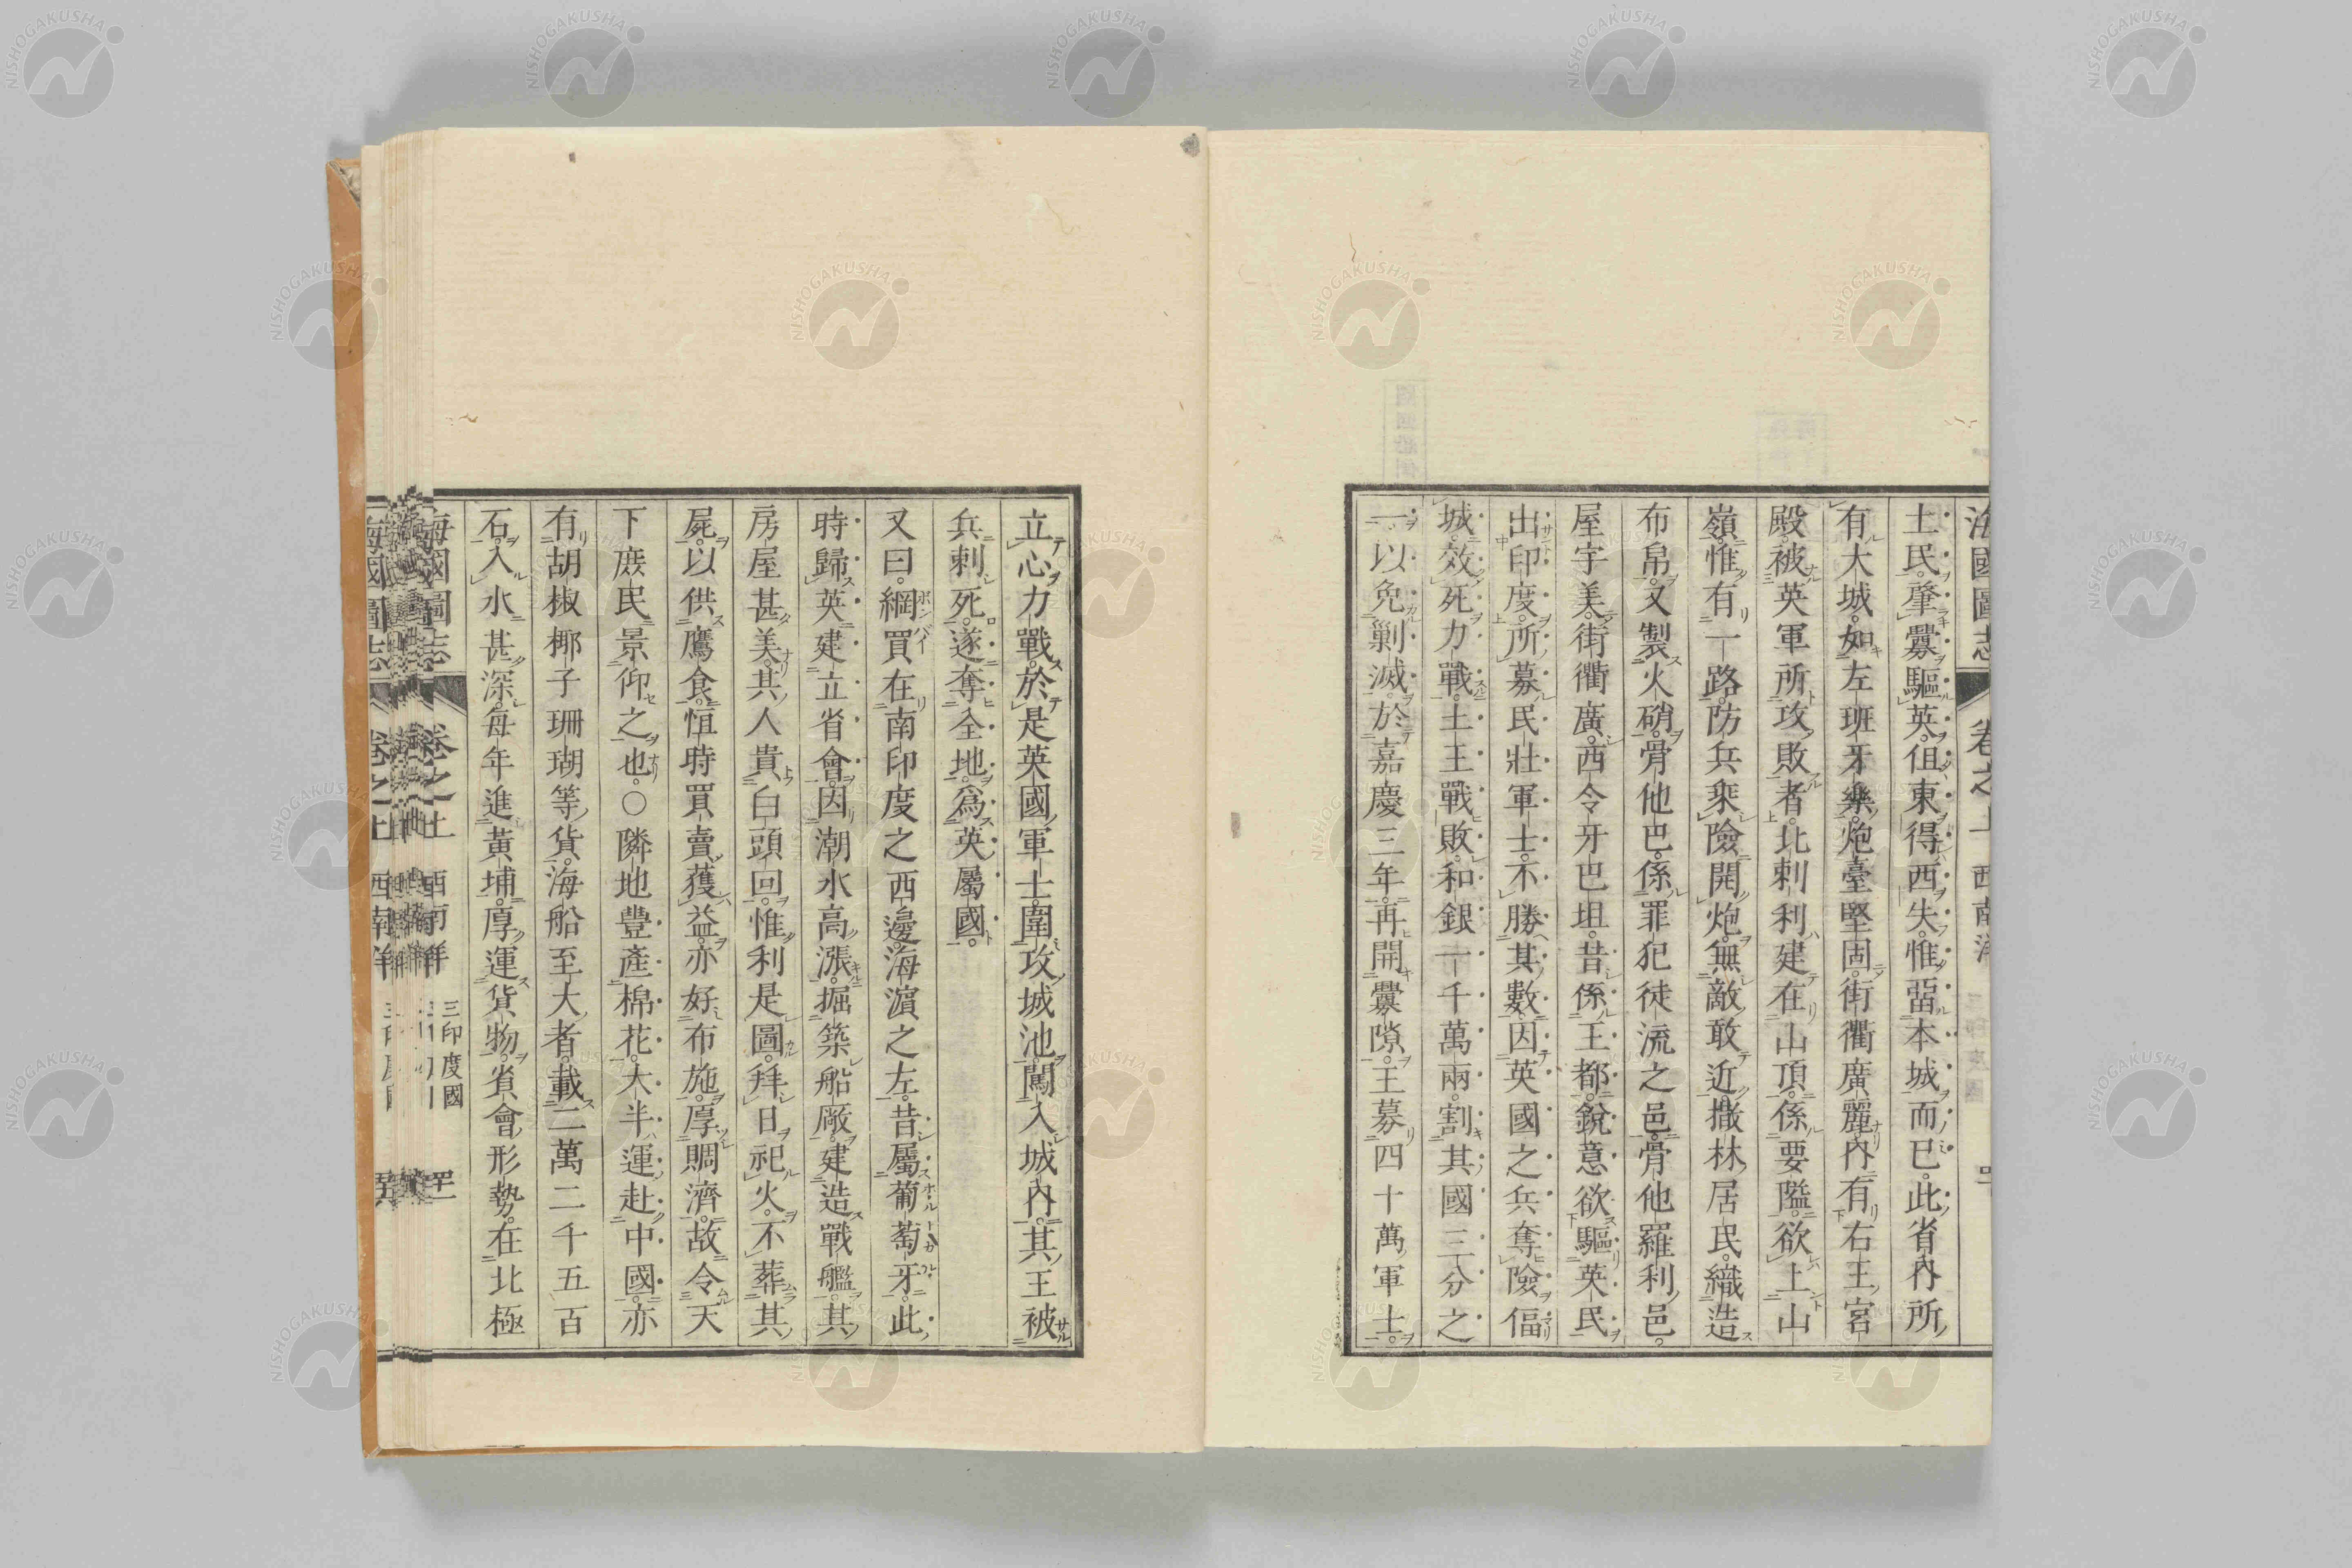 海國圖志 卷之 西南洋
土民。肇釁驅英。但東得西失。惟留本城而已。此省內所
有大城。如左班牙樂。炮臺堅固。街衢廣麗。內有右王宮
殿。被英軍所攻敗者。北剌利建在山頂。係要隘。欲上山
嶺。惟有一路。防兵乘險開炮。無敵敢近。撒林居民。織造
布帛。又製火硝。骨他巴。係罪犯徒流之邑。骨他羅利邑。
屋宇美。街衢廣。西令牙巴坦。昔係王都。銳意欲驅英民
出印度。所募民壯軍士。不勝其數。因英國之兵奪險偪
城。效死力戰。土王戰敗。和銀一千萬兩。割其國三分之
一。以免剿滅。於嘉慶三年。再開釁隙。王募四十萬軍士。
立心力戰。於是英國軍士。圍攻城池。闖入城內。其王被
兵刺死。遂奪全地。爲英屬國。
又曰。網買在南印度之西邊。海濵之左。昔屬葡萄牙。此
時歸英。建立省會。因潮水高漲。掘築船廠。建造戰艦。其
房屋甚美。其人貴白頭回。惟利是圖。拜日祀火。不葬其
屍。以供鷹食。恒時買賣獲益。亦好布施。厚賙濟。故令天
下庶民景仰之也。○隣地豐產棉花。大半運赴中國。亦
有胡椒椰子珊瑚等貨。海船至大者。載二萬二千五百
石。入水甚深。每年進黃埔。厚運貨物。省會形勢。在北極
海國圖志 卷之上 西南洋 三印度國